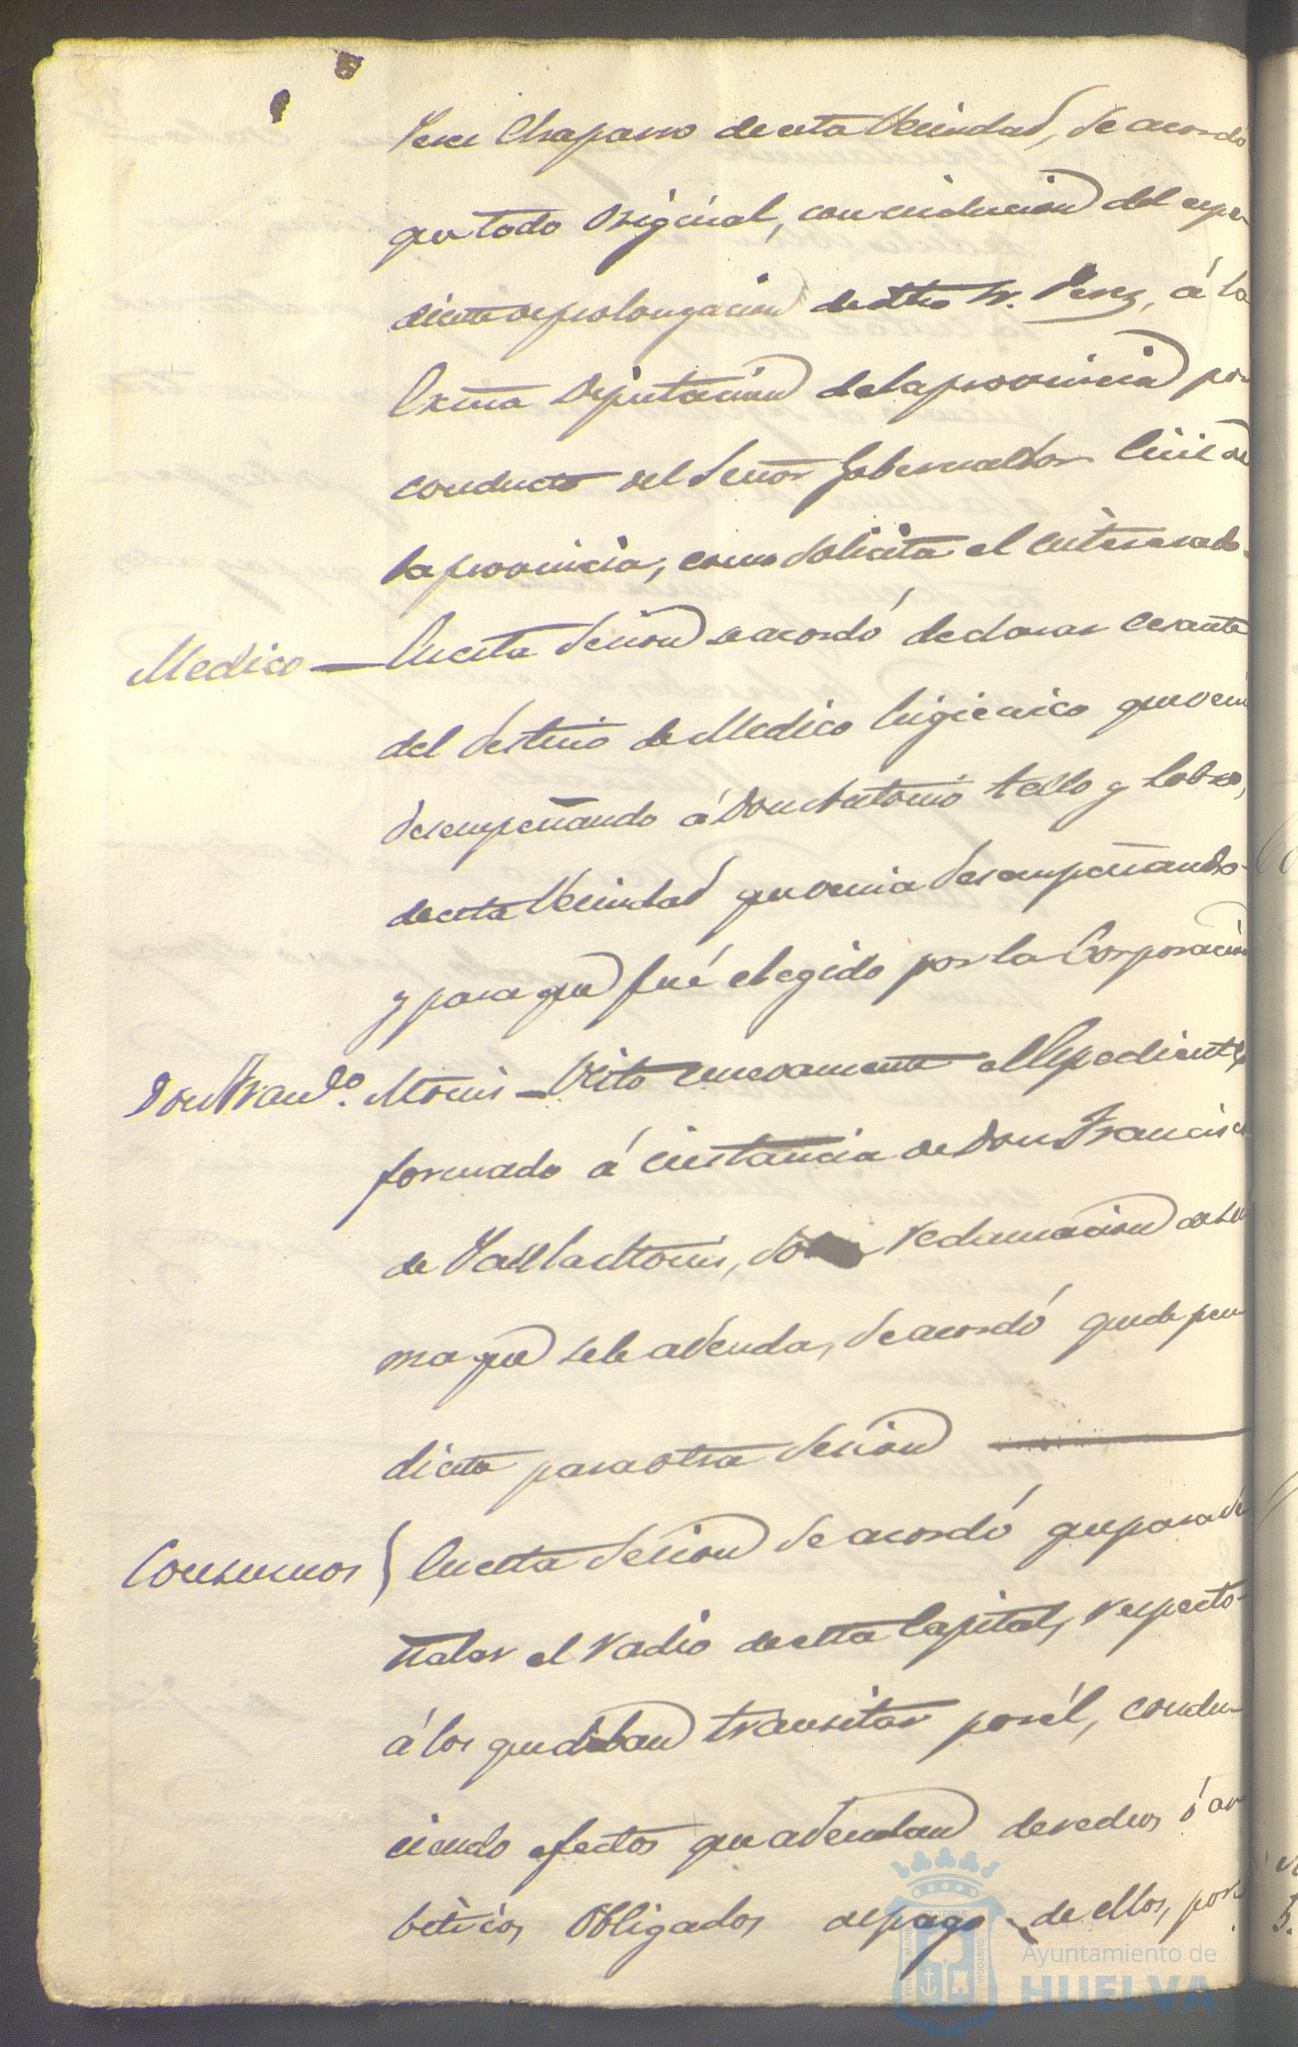 Perez Chaparro de esta Vecindad, se acordó
que todo original, con inclusion del espe
diente de prolongacion de dho Sr. Perez, á la
Exma Diputacion de la provincia por
conducto del Señor Gobernador Civil de
la provincia, como solicita el interesado.
Medico — En esta Sesion se acordó declarar cesante
del destino de Medico higienico que
desempeñando á Don Antonio Tello y Lobo,
de esta Vecindad que venia desempeñando
y para que fué elegido por la Corporacion
Don Frandº. Monis — Visto nuevamente el Espediente
formado á instancia de Don Francisco
de Monis, reclamacion de su
ma que se le adeuda, se acordó quede pen
diente para otra Sesion
Consumos } En esta Sesion se acordó que para se
ñalar el radio de esta Capital, respecto
á los que deban transitar por él, condu
ciendo efectos que adeudan derechos ó ar
bitrios, obligados de pago de ellos, por
Ayuntamiento de
HUELVA